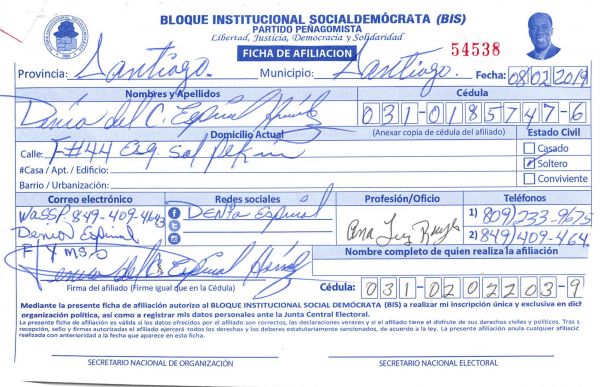 BLOQUE INSTITUCIONAL SOCIALDEMÓCRATA (BIS)
PARTIDO PEÑAGOMISTA
Libertad, Justicia, Democracia y Solidaridad
FICHA DE AFILIACION
54538
Provincia: Santiago. Municipio: Santiago. Fecha: 08/02/2019
Nombres y Apellidos Cédula
Denia del C. Espinal 031-0185747-6
Domicilio Actual (Anexar copia de cédula del afiliado) Estado Civil
Calle: F#44 Esq. Sal Casado
#Casa / Apt. / Edificio: Soltero
Barrio / Urbanización: Conviviente
Correo electrónico Redes sociales Profesión/Oficio Teléfonos
WaSSP. 849-409-4643 Denia Espinal 1) 809/233-9675
Denia Espinal Ana 2) 849/409-464
F Y MSO Nombre completo de quien realiza la afiliación
del C. Espinal
Firma del afiliado (Firme igual que en la Cédula) Cédula: 031-0202203-9
Mediante la presente ficha de afiliación autorizo al BLOQUE INSTITUCIONAL SOCIAL DEMÓCRATA (BIS) a realizar mi inscripción única y exclusiva en dich
organización política, así como a registrar mis datos personales ante la Junta Central Electoral.
La presente ficha de afiliación es válida si los datos ofrecidos por el afiliado son correctos, las declaraciones veraces y si el afiliado tiene el disfrute de sus derechos civiles y políticos. Tras s
recepción, sello y firmas autorizadas el afiliado ejercerá todos los derechos y los deberes estatutariamente sancionados, de acuerdo a la ley. La presente afiliación anula cualquier afiliació
realizada con anterioridad a la fecha que aparece en esta ficha.
SECRETARIO NACIONAL DE ORGANIZACIÓN SECRETARIO NACIONAL ELECTORAL